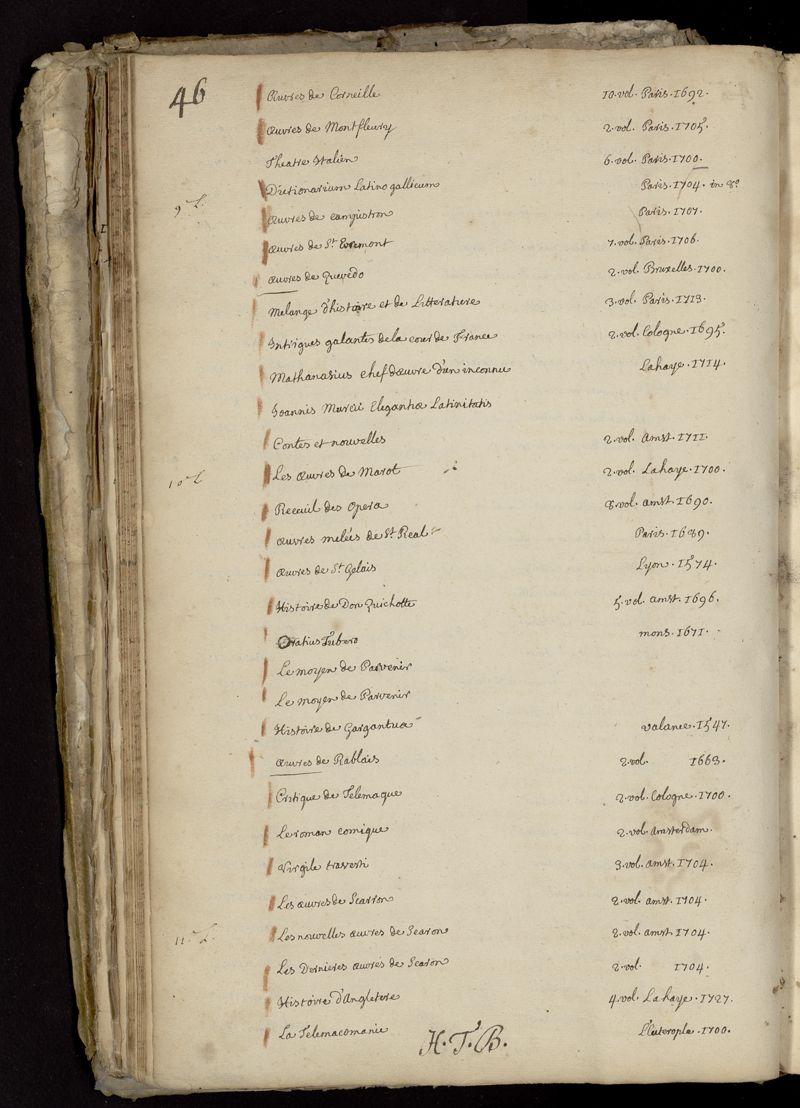 46
Œuvres de Corneille 10. vol. Paris. 1692.
œuvres de Montfleury 2. vol. Paris. 1705.
Theatre Italien 6. vol. Paris. 1700.
Dictionarium Latino gallicum Paris. 1704. in 8°
9.e L.
œuvres de campistron Paris. 1707.
œuvres de St. Evremont 7. vol. Paris. 1706.
œuvres de Quevedo 2. vol. Bruxelles. 1700.
Melange d'histoire et de Litterature 3. vol. Paris. 1713.
Intrigues galantes dela cour de France 2. vol. Cologne. 1695.
Mathanasius chef dœuvre d'un inconnu Lahaye. 1714.
Joannis Elegantiæ Latinitatis
Contes et nouvelles 2. vol. amst. 1711.
10.e L
Les œuvres de Marot 2. vol. Lahaye. 1700.
Receuil des Opera 8. vol. amst. 1690.
œuvres melées de St. Real Paris. 1689.
œuvres de St. Gelais Lyon. 1574.
Histoire de Don Quichotte 5. vol. amst. 1696.
Oratius Tubero mons. 1671.
Le moyen de Parvenir
Le moyen de Parvenir
Histoire de Gargantua valance. 1547.
œuvres de Rablais 2. vol. 1663.
Critique de Telemaque 2. vol. Cologne. 1700.
Le roman comique 2. vol. amsterdam.
Virgile travesti 3. vol. amst. 1704.
Les œuvres de Scarron 2. vol. amst. 1704.
11.e L.
Les nouvelles œuvres de Scaron 2. vol. amst. 1704.
Les Dernieres œuvres de Scaron 2. vol 1704.
Histoire d'Angletere 4. vol. Lahaye. 1727.
La Telemacomanie 1700.
H. T. B.